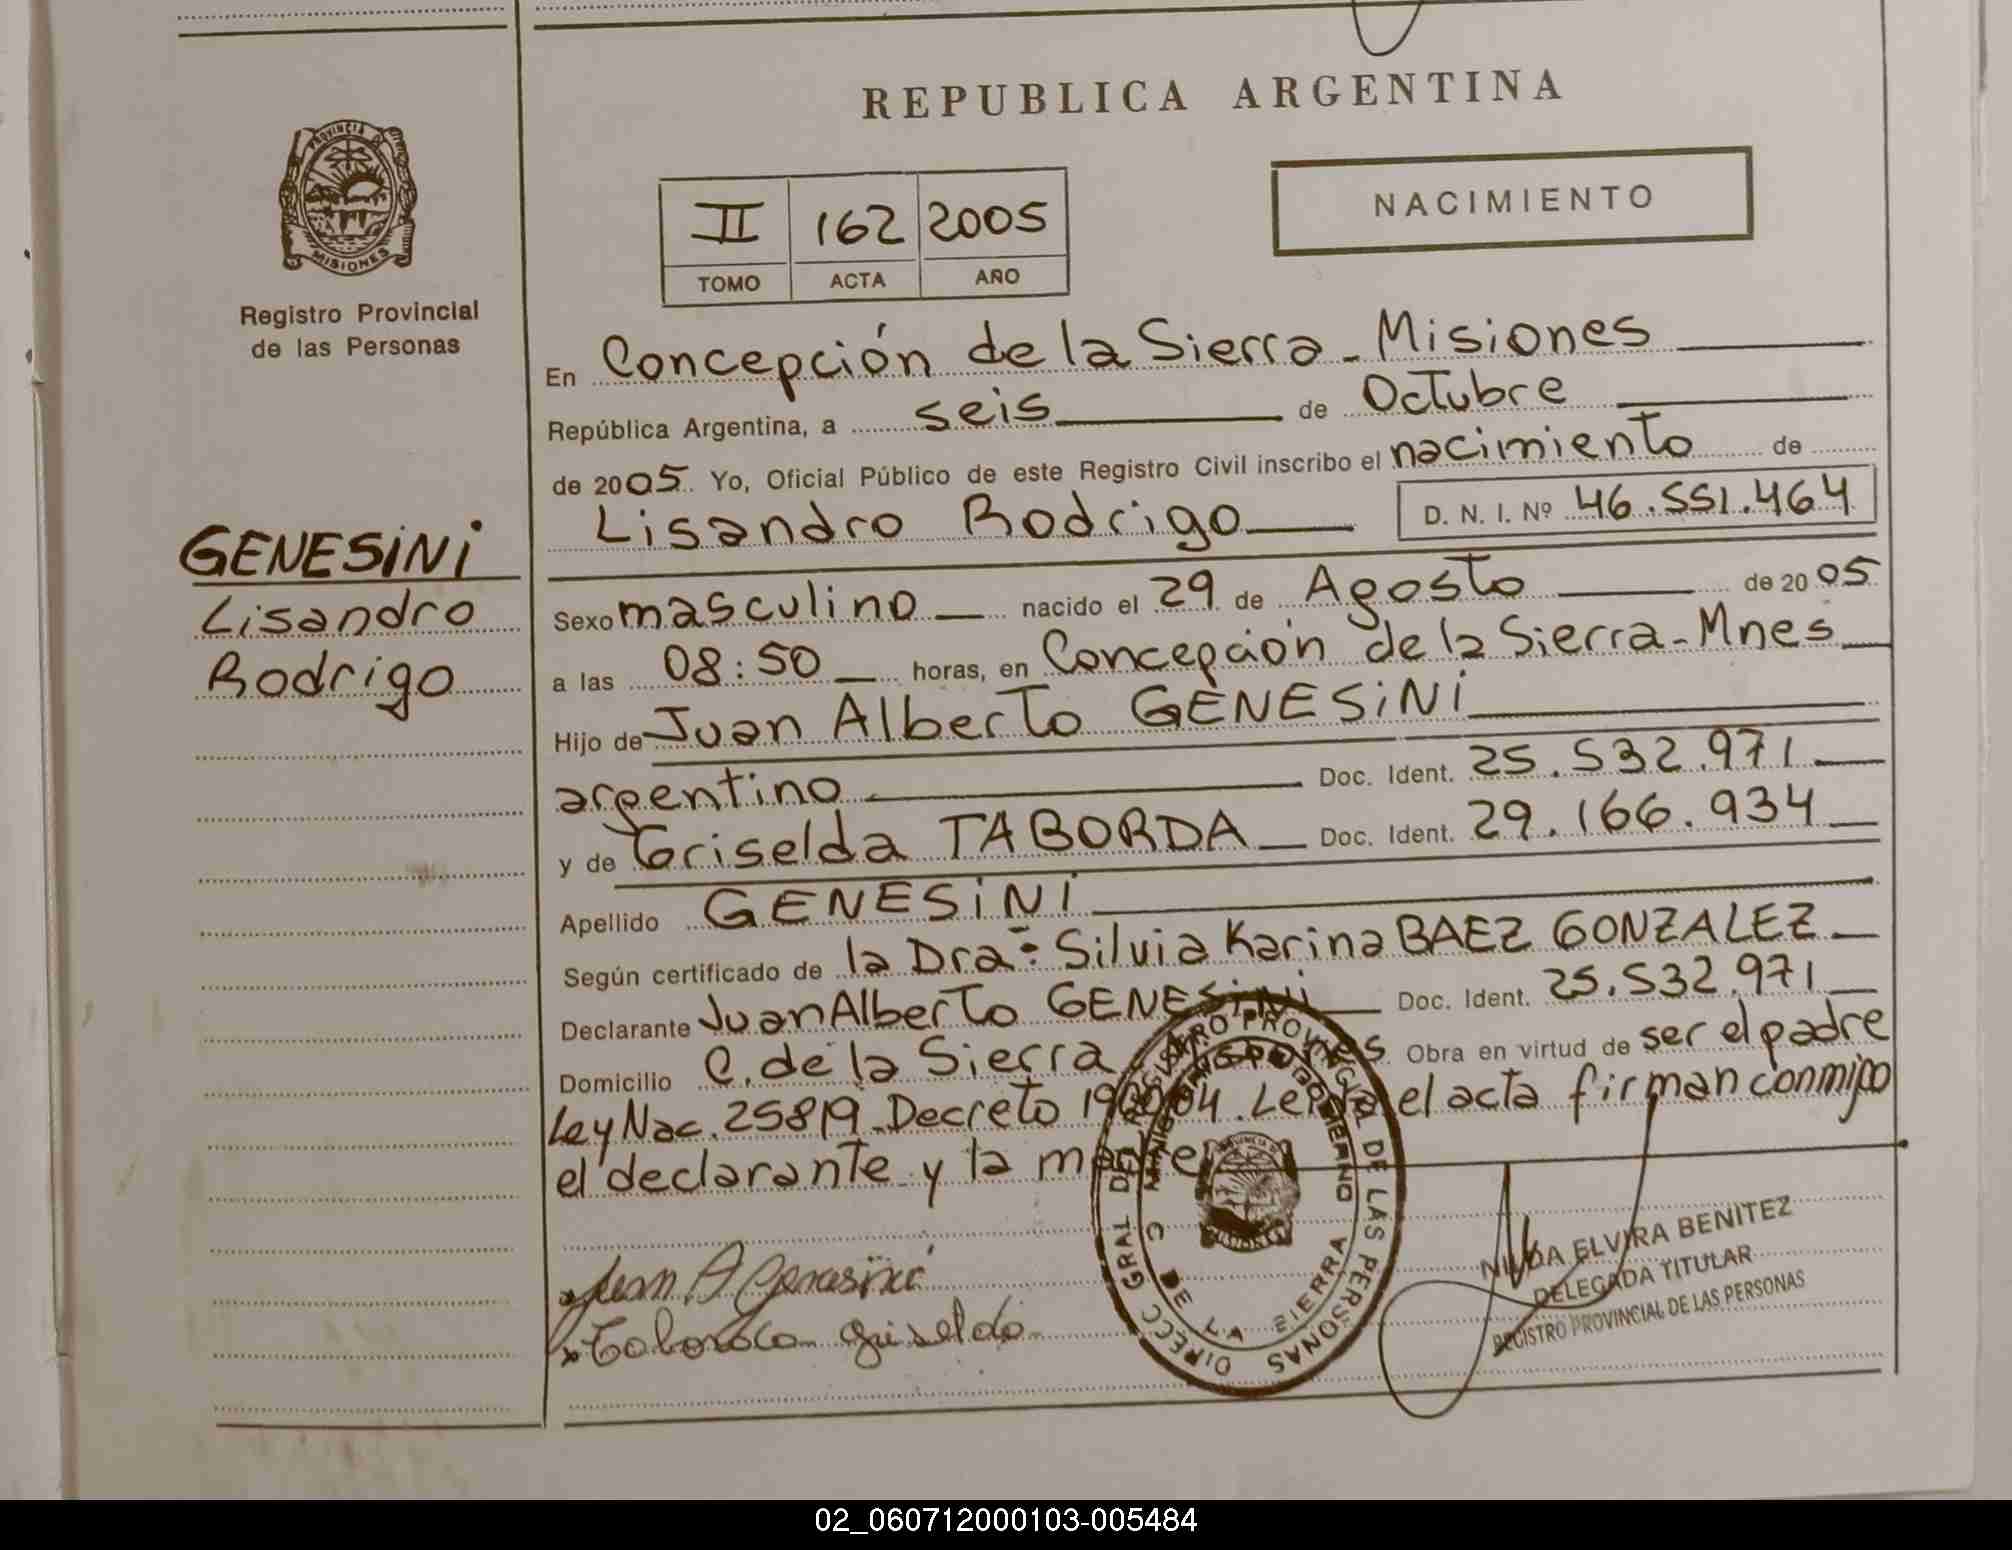 REPUBLICA ARGENTINA
PROVINCIA DE MISIONES
Registro Provincial
de las Personas
II 162 2005
TOMO ACTA AÑO
NACIMIENTO
En Concepción de la Sierra - Misiones
República Argentina, a seis de Octubre
de 2005 Yo, Oficial Público de este Registro Civil inscribo el nacimiento de
Lisandro Rodrigo D. N. I. Nº 46.551.464
GENESiNi
Lisandro
Rodrigo
Sexo masculino nacido el 29 de Agosto de 2005
a las 08:50 horas, en Concepción de la Sierra - Mnes
Hijo de Juan Alberto GENESiNi
argentino Doc. Ident. 25.532.971
y de Griselda TABORDA Doc. Ident. 29.166.934
Apellido GENESiNi
Según certificado de la Dra: Silvia Karina BAEZ GONZALEZ
Declarante Juan Alberto GENESiNi Doc. Ident. 25.532.971
Domicilio C. de la Sierra Obra en virtud de ser el padre
Ley Nac. 25819 Decreto el acta firman conmigo
el declarante y la madre
Juan A Genesini
Taborda Griselda
DIRECC GRAL DEL REGISTRO PROVINCIAL DE LAS PERSONAS
MINISTERIO DE GOBIERNO
C DE LA SIERRA
NILDA ELVIRA BENITEZ
DELEGADA TITULAR
REGISTRO PROVINCIAL DE LAS PERSONAS
02_060712000103-005484